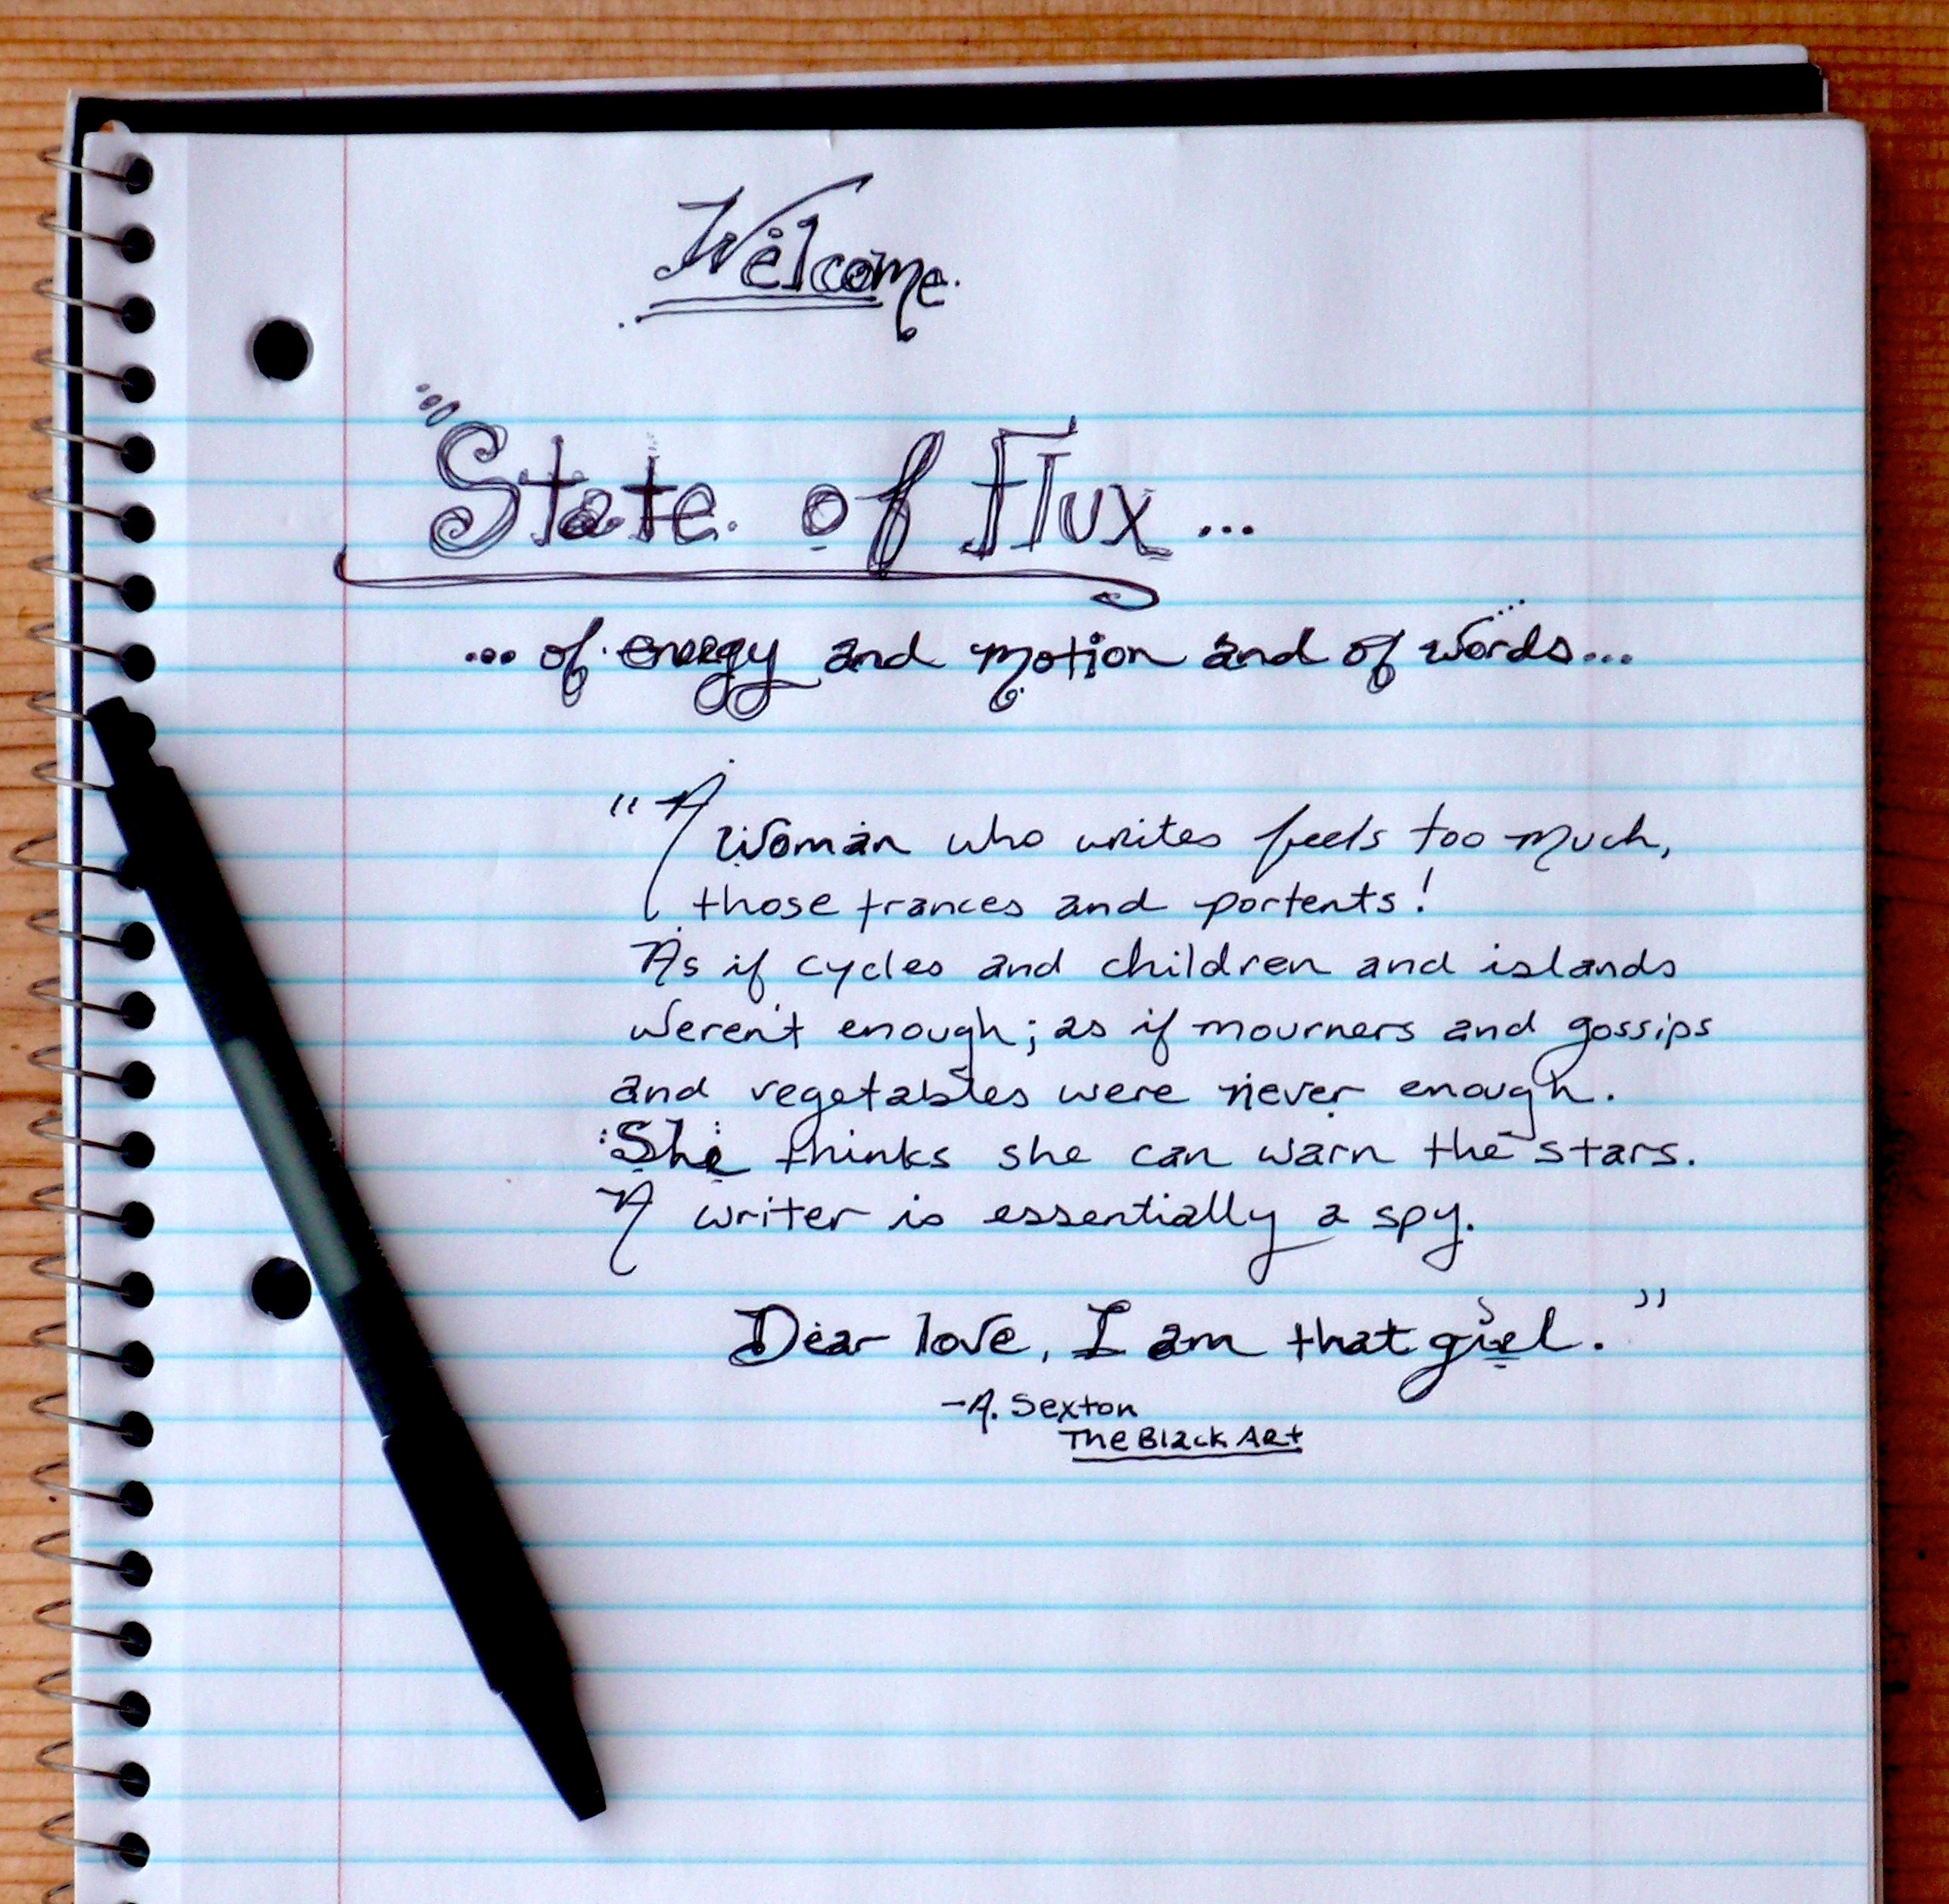 Welcome.
State of Flux...
... of energy and motion and of words...
"A Woman who writes feels too much,
those trances and portents!
As if cycles and children and islands
weren't enough; as if mourners and gossips
and vegetables were never enough.
She thinks she can warn the stars.
A writer is essentially a spy.
Dear love, I am that girl."
-A. Sexton
The Black Art